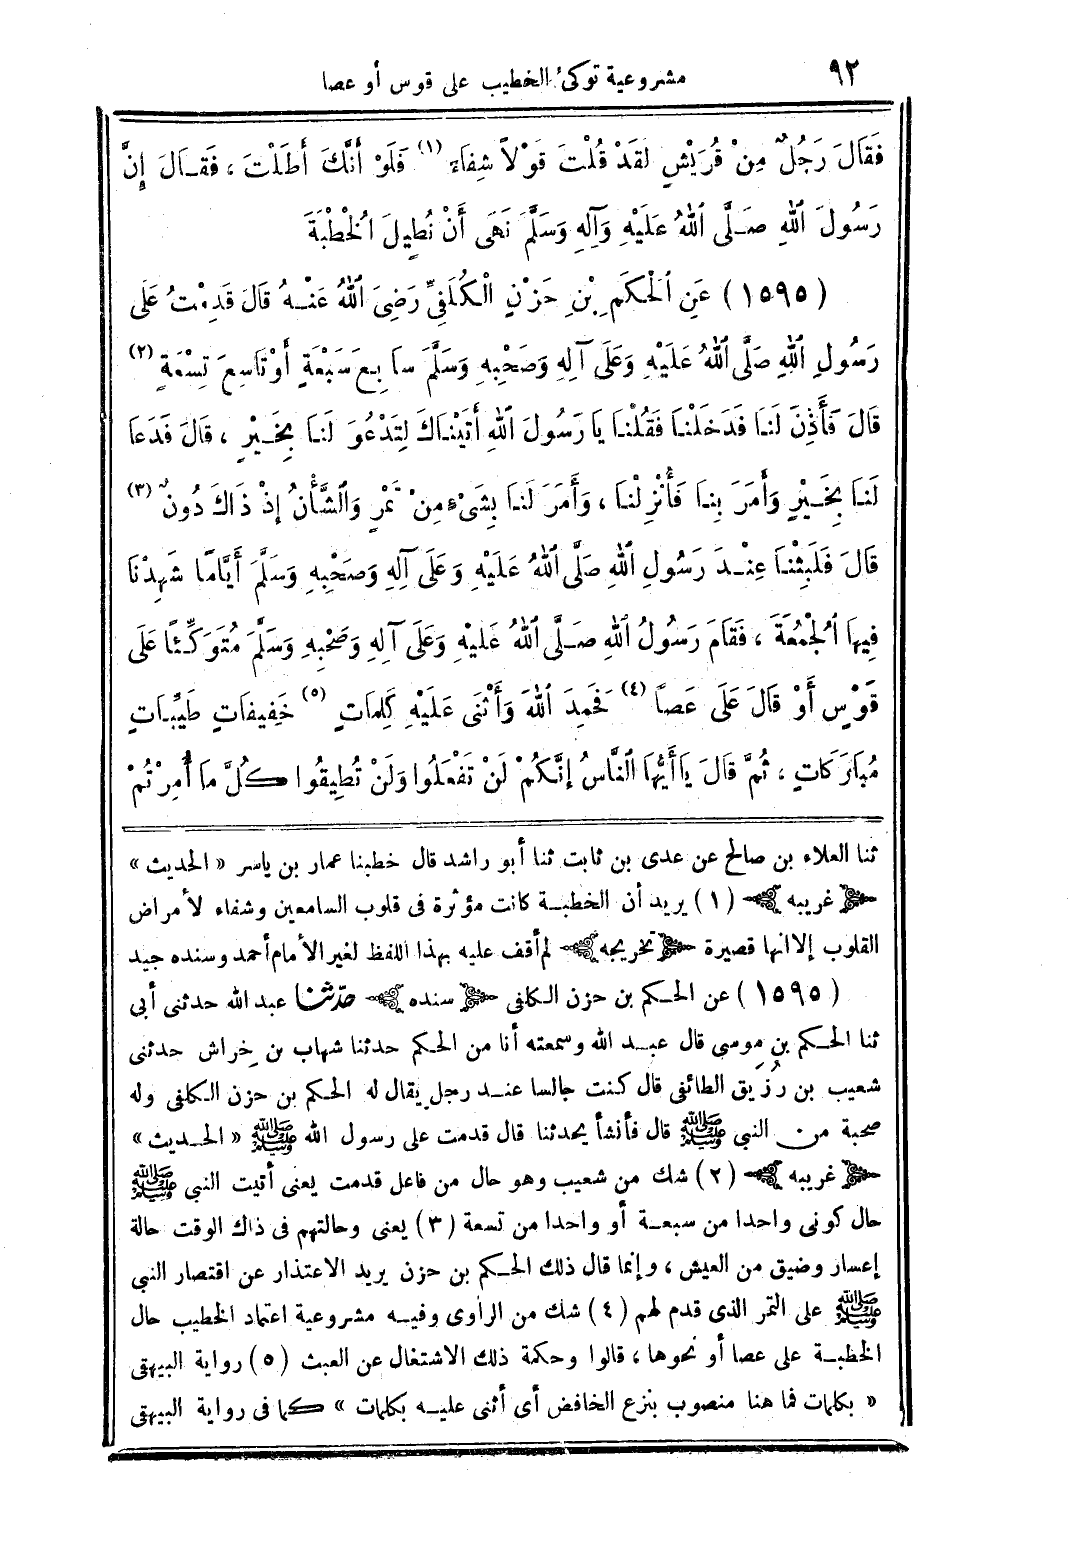 ٩٢
مشروعية توكئ الخطيب على قوس أو عصا
فَقَالَ رَجُلٌ مِنْ قُرَيْشٍ لَقَدْ قُلْتَ قَوْلاً شِفَاءً (١) فَلَوْ أَنَّكَ أَطَلْتَ ، فَقَالَ إِنَّ
رَسُولَ اللهِ صَلَّى اللهُ عَلَيْهِ وَآلِهِ وَسَلَّمَ نَهَى أَنْ نُطِيلَ الْخُطْبَةَ
(١٥٩٥) عَنِ الْحَكَمِ بْنِ حَزْنٍ الْكُلَفِيِّ رَضِيَ اللهُ عَنْهُ قَالَ قَدِمْتُ عَلَى
رَسُولِ اللهِ صَلَّى اللهُ عَلَيْهِ وَعَلَى آلِهِ وَصَحْبِهِ وَسَلَّمَ سَابِعَ سَبْعَةٍ أَوْ تَاسِعَ تِسْعَةٍ (٢)
قَالَ فَأَذِنَ لَنَا فَدَخَلْنَا فَقُلْنَا يَا رَسُولَ اللهِ أَتَيْنَاكَ لِتَدْعُوَ لَنَا بِخَيْرٍ ، قَالَ فَدَعَا
لَنَا بِخَيْرٍ وَأَمَرَ بِنَا فَأُنْزِلْنَا ، وَأَمَرَ لَنَا بِشَيْءٍ مِنْ تَمْرٍ وَالشَّأْنُ إِذْ ذَاكَ دُونٌ (٣)
قَالَ فَلَبِثْنَا عِنْدَ رَسُولِ اللهِ صَلَّى اللهُ عَلَيْهِ وَعَلَى آلِهِ وَصَحْبِهِ وَسَلَّمَ أَيَّامًا شَهِدْنَا
فِيهَا الْجُمُعَةَ ، فَقَامَ رَسُولُ اللهِ صَلَّى اللهُ عَلَيْهِ وَعَلَى آلِهِ وَصَحْبِهِ وَسَلَّمَ مُتَوَكِّئًا عَلَى
قَوْسٍ أَوْ قَالَ عَلَى عَصًا (٤) فَحَمِدَ اللهَ وَأَثْنَى عَلَيْهِ كَلِمَاتٍ (٥) خَفِيفَاتٍ طَيِّبَاتٍ
مُبَارَكَاتٍ ، ثُمَّ قَالَ يَا أَيُّهَا النَّاسُ إِنَّكُمْ لَنْ تَفْعَلُوا وَلَنْ تُطِيقُوا كُلَّ مَا أُمِرْتُمْ
ثنا العلاء بن صالح عن عدى بن ثابت ثنا أبو راشد قال خطبنا عمار بن ياسر « الحديث »
غريبه (١) يريد أن الخطبة كانت مؤثرة فى قلوب السامعين وشفاء لأمراض
القلوب إلا انها قصيرة تخريجه لم أقف عليه بهذا اللفظ لغير الأمام أحمد وسنده جيد
(١٥٩٥) عن الحكم بن حزن الكلفى سنده حدثنا عبد الله حدثنى أبى
ثنا الحكم بن موسى قال عبد الله وسمعته أنا من الحكم حدثنا شهاب بن خراش حدثنى
شعيب بن رُزيق الطائفى قال كنت جالسا عند رجل يقال له الحكم بن حزن الكلفى وله
صحبة من النبي ﷺ قال فأنشأ يحدثنا قال قدمت على رسول الله ﷺ « الحديث »
غريبه (٢) شك من شعيب وهو حال من فاعل قدمت يعنى أتيت النبي ﷺ
حال كونى واحدا من سبعة أو واحدا من تسعة (٣) يعنى وحالتهم فى ذاك الوقت حالة
إعسار وضيق من العيش ، وإنما قال ذلك الحكم بن حزن يريد الاعتذار عن اقتصار النبي
ﷺ على التمر الذى قدم لهم (٤) شك من الراوى وفيه مشروعية اعتماد الخطيب حال
الخطبة على عصا أو نحوها ، قالوا وحكمة ذلك الاشتغال عن العبث (٥) رواية البيهقى
« بكلمات فما هنا منصوب بنزع الخافض أى أثنى عليه بكلمات » كما فى رواية البيهقى